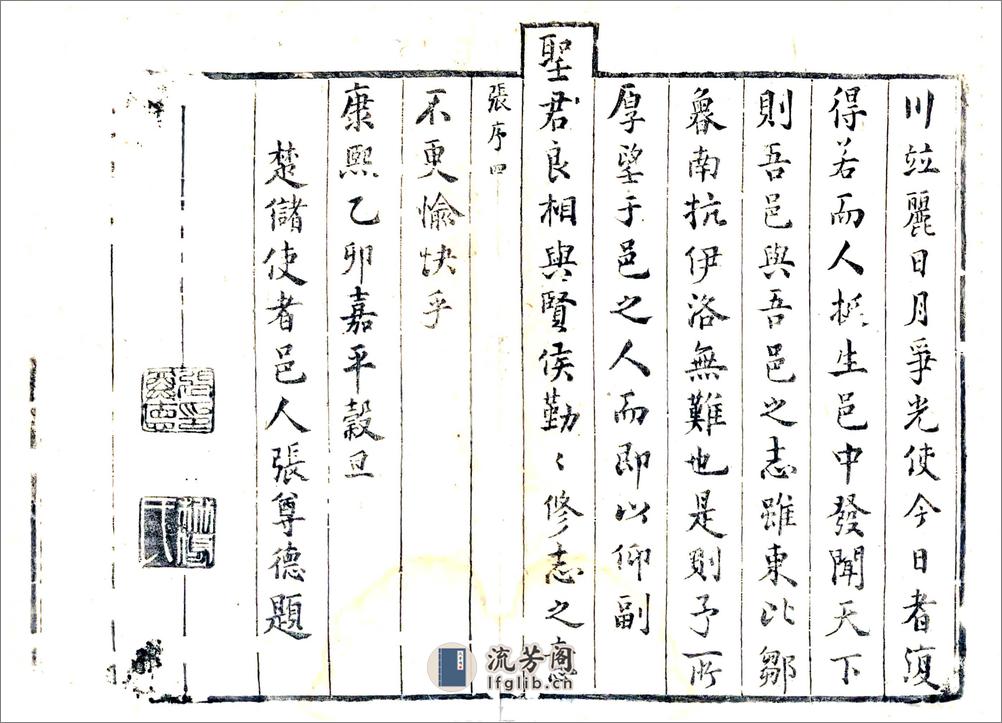 川竝麗日月爭光使今日者復
得若而人挺生邑中發聞天下
則吾邑與吾邑之志雖東比鄒
魯南抗伊洛無難也是則予所
厚望于邑之人而即以仰副
聖君良相與賢侯勤〻修志之意
張序 四
不更愉快乎
康熙乙卯嘉平穀旦
楚儲使者邑人張尊德題
流芳阁
lfglib.cn